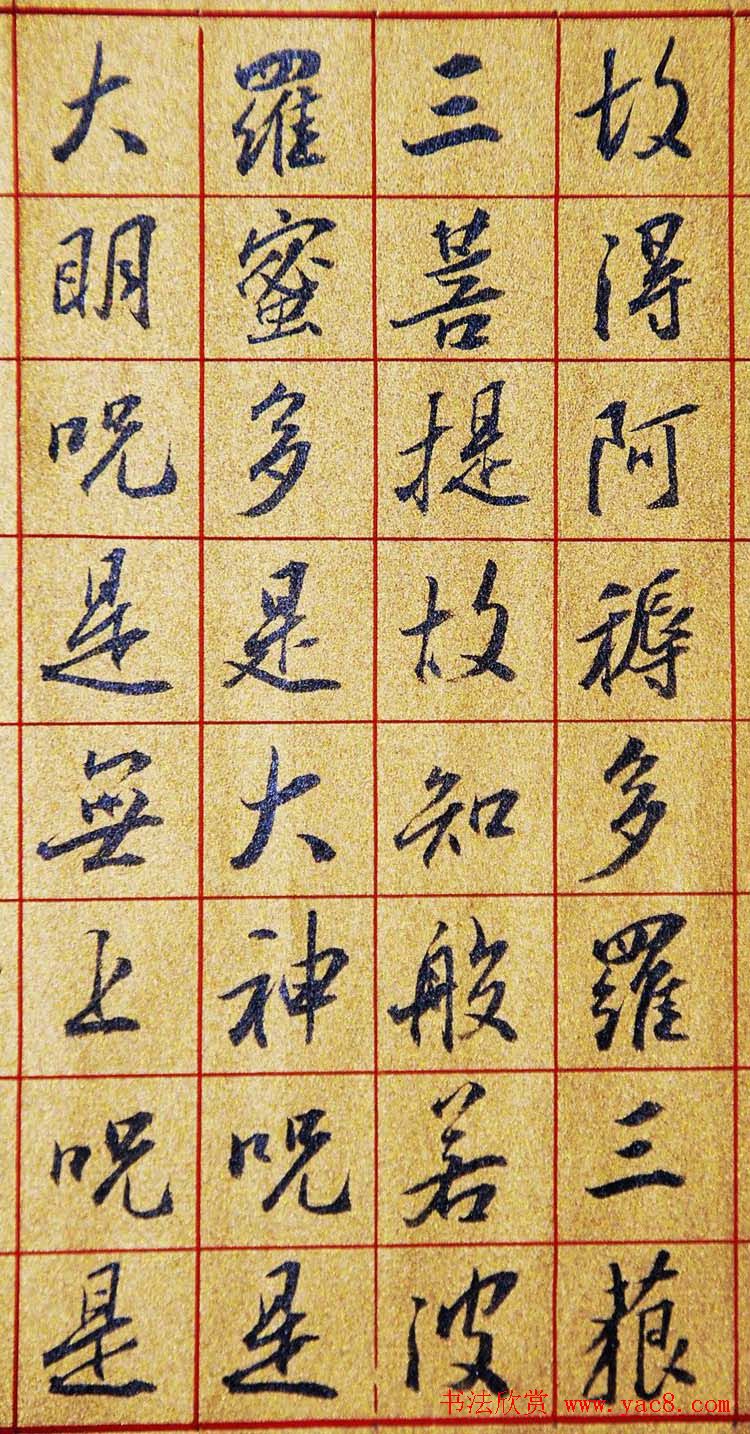 故得阿耨多羅三藐
三菩提故知般若波
羅蜜多是大神呪是
大明呪是無上呪是
书法欣赏 www.yac8.com